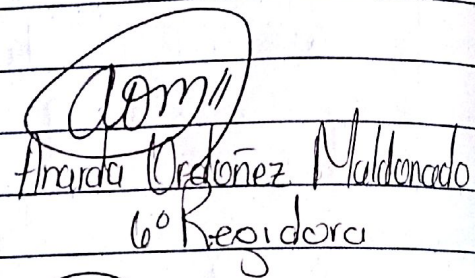 aom"
Anarda Ordoñez Maldonado
6º Regidora